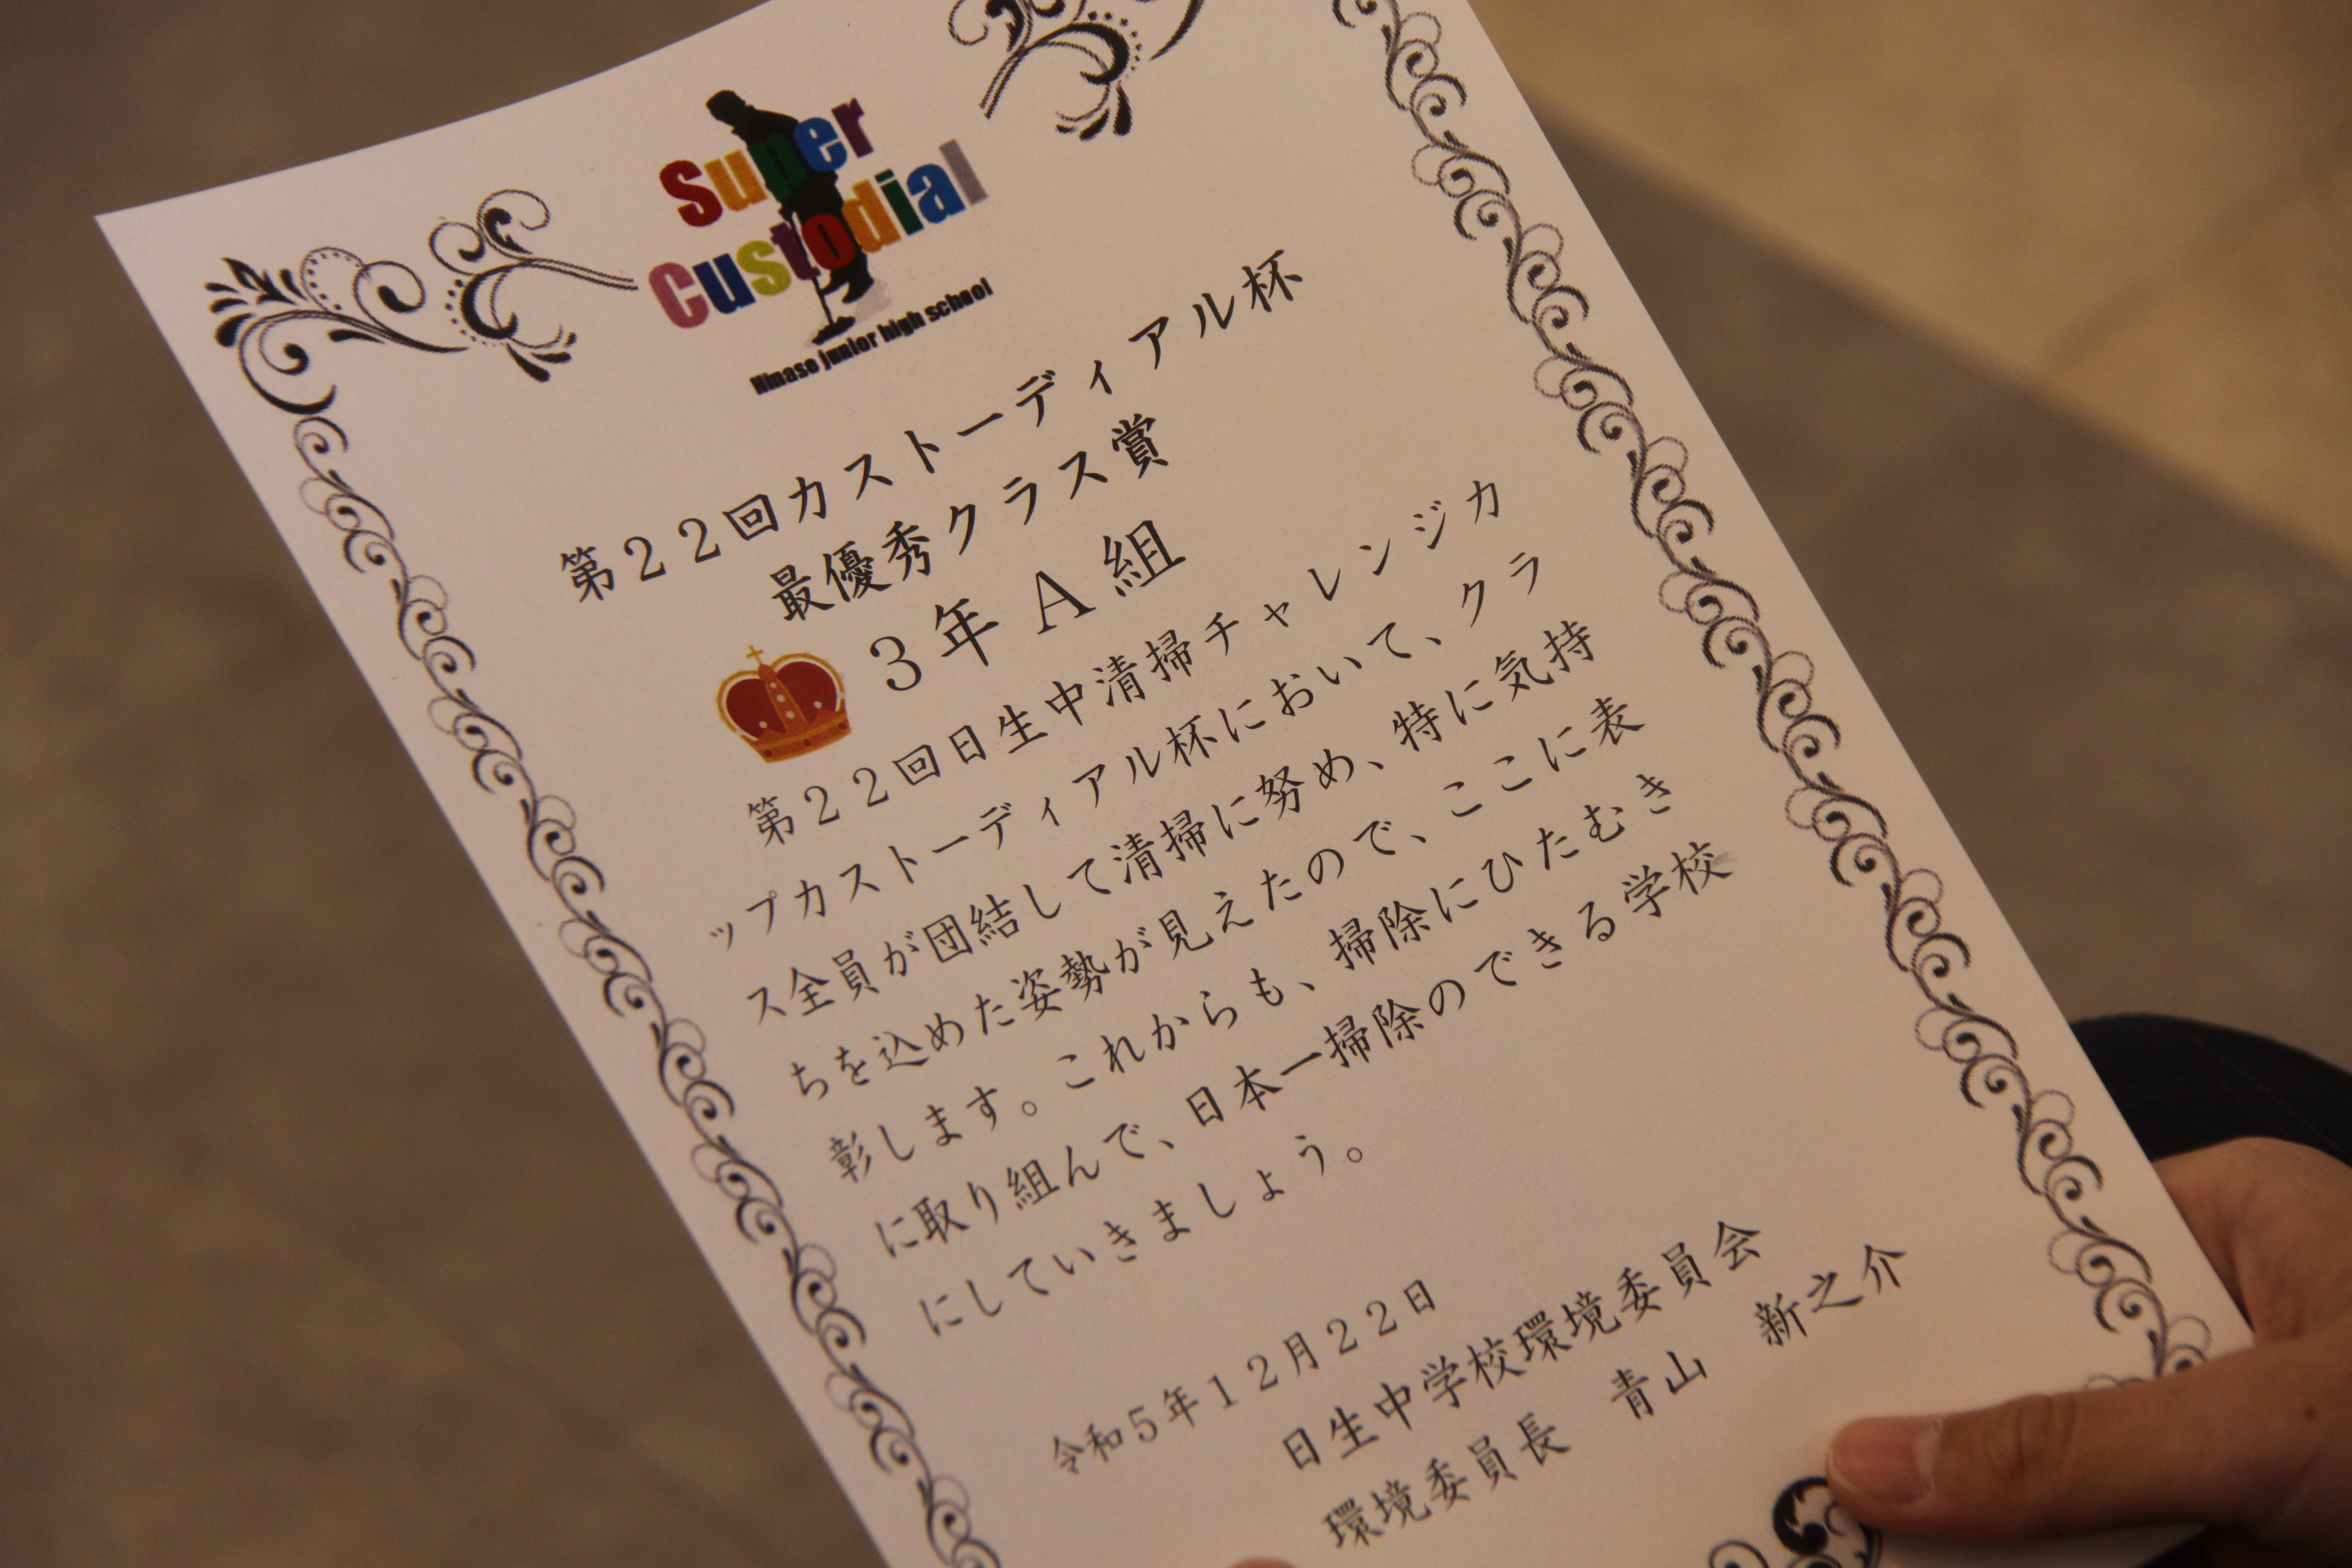 Super
Custodial
Hinase junior high school
第２２回カストーディアル杯
最優秀クラス賞
３年Ａ組
第２２回日生中清掃チャレンジカ
ップカストーディアル杯において、クラ
ス全員が団結して清掃に努め、特に気持
ちを込めた姿勢が見えたので、ここに表
彰します。これからも、掃除にひたむき
に取り組んで、日本一掃除のできる学校
にしていきましょう。
令和５年１２月２２日
日生中学校環境委員会
環境委員長　青山　新之介